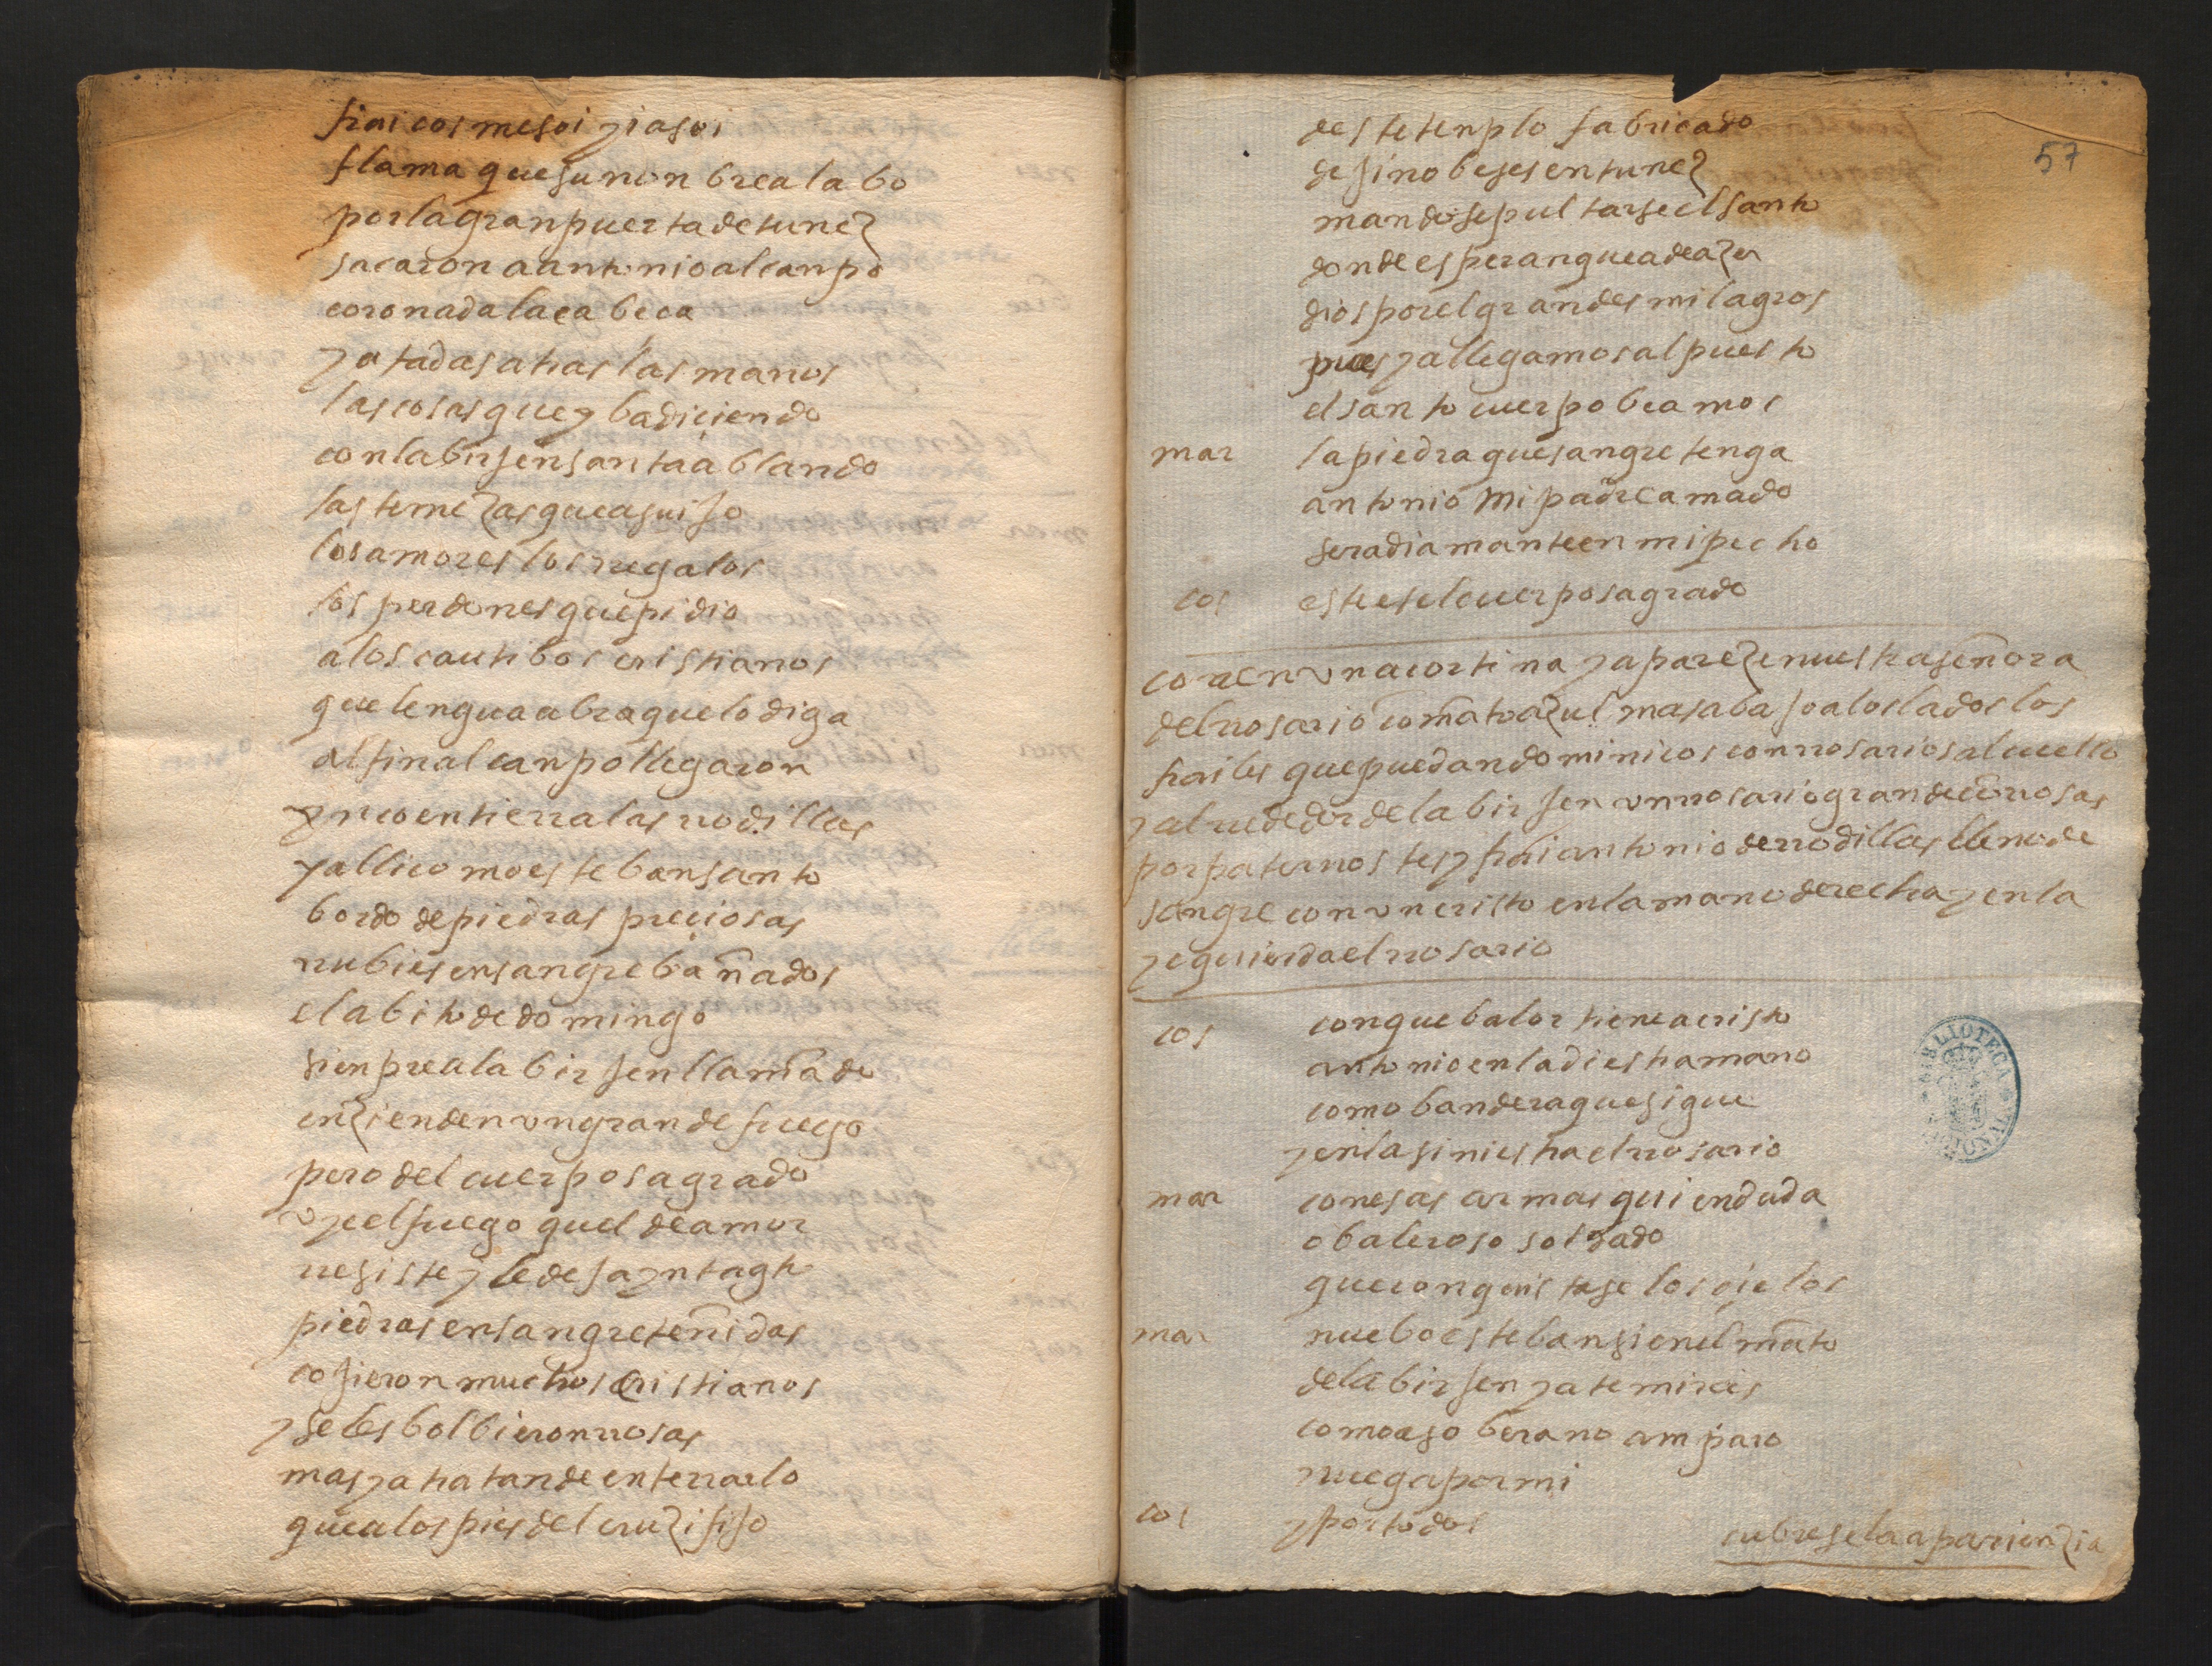 frai cosme soi y ia soi
flama que su nonbre alabo
por la gran puerta de tunez
sacaron a antonio al canpo
coronada la cabeca
y atadas atras las manos
las cosas que yba diciendo
con la birjen santa ablando
las ternezas que a su ijo
los amores los rregalos
los perdones que pidio
a los cautibos cristianos
que lengua abra que lo diga
al fin al canpo llegaron
ynco en tierra las rrodillas
y alli como esteban santo
bordo de piedras preciosas
rrubies en sangre bañados
el abito de domingo
sienpre a la birjen llamãdo
enzienden vn grande fuego
pero del cuerpo sagrado
vye el fuego quel de amor
rresiste y le deja yntagto
piedras en sangre teñidas
cojieron muchos cristianos
y se les bolbieron rrosas
mas ya tratan de enterrarlo
que a los pies del cruzifijo
57
deste tenplo fabricado
de jinobeses en tunez
mandó sepultarse el santo
donde esperan que a de azer
dios por el grandes milagros
pues ya llegamos al puesto
el santo cuerpo beamos
mar la piedra que sangre tenga
antonio mi padre amado
sera diamante en mi pecho
cos este es el cuerpo sagrado
coren vna cortina y apareze nuestra señora
del rrosario co mãto azul mas abajo a los lados los
frailes que puedan dominicos con rrosarios al cuello
y al rrededor de la birjen vn rrosario grande cõ rrosas
por paternostes y frai antonio de rrodillas lleno de
sangre con vn cristo en la mano derecha y en la
yzquierda el rrosario
cos con que balor tiene a cristo
antonio en la diestra mano
como bandera que sigue
y en la siniestra el rrosario
mar con esas armas quien duda
o baleroso soldado
que conquistase los cielos
mar nuebo esteban si en el mãto
de la birjen ya te mirais
como a soberano amparo
rruega por mi
cos y por todos
cubrese la aparienzia
BIBLIOTECA NACIONAL